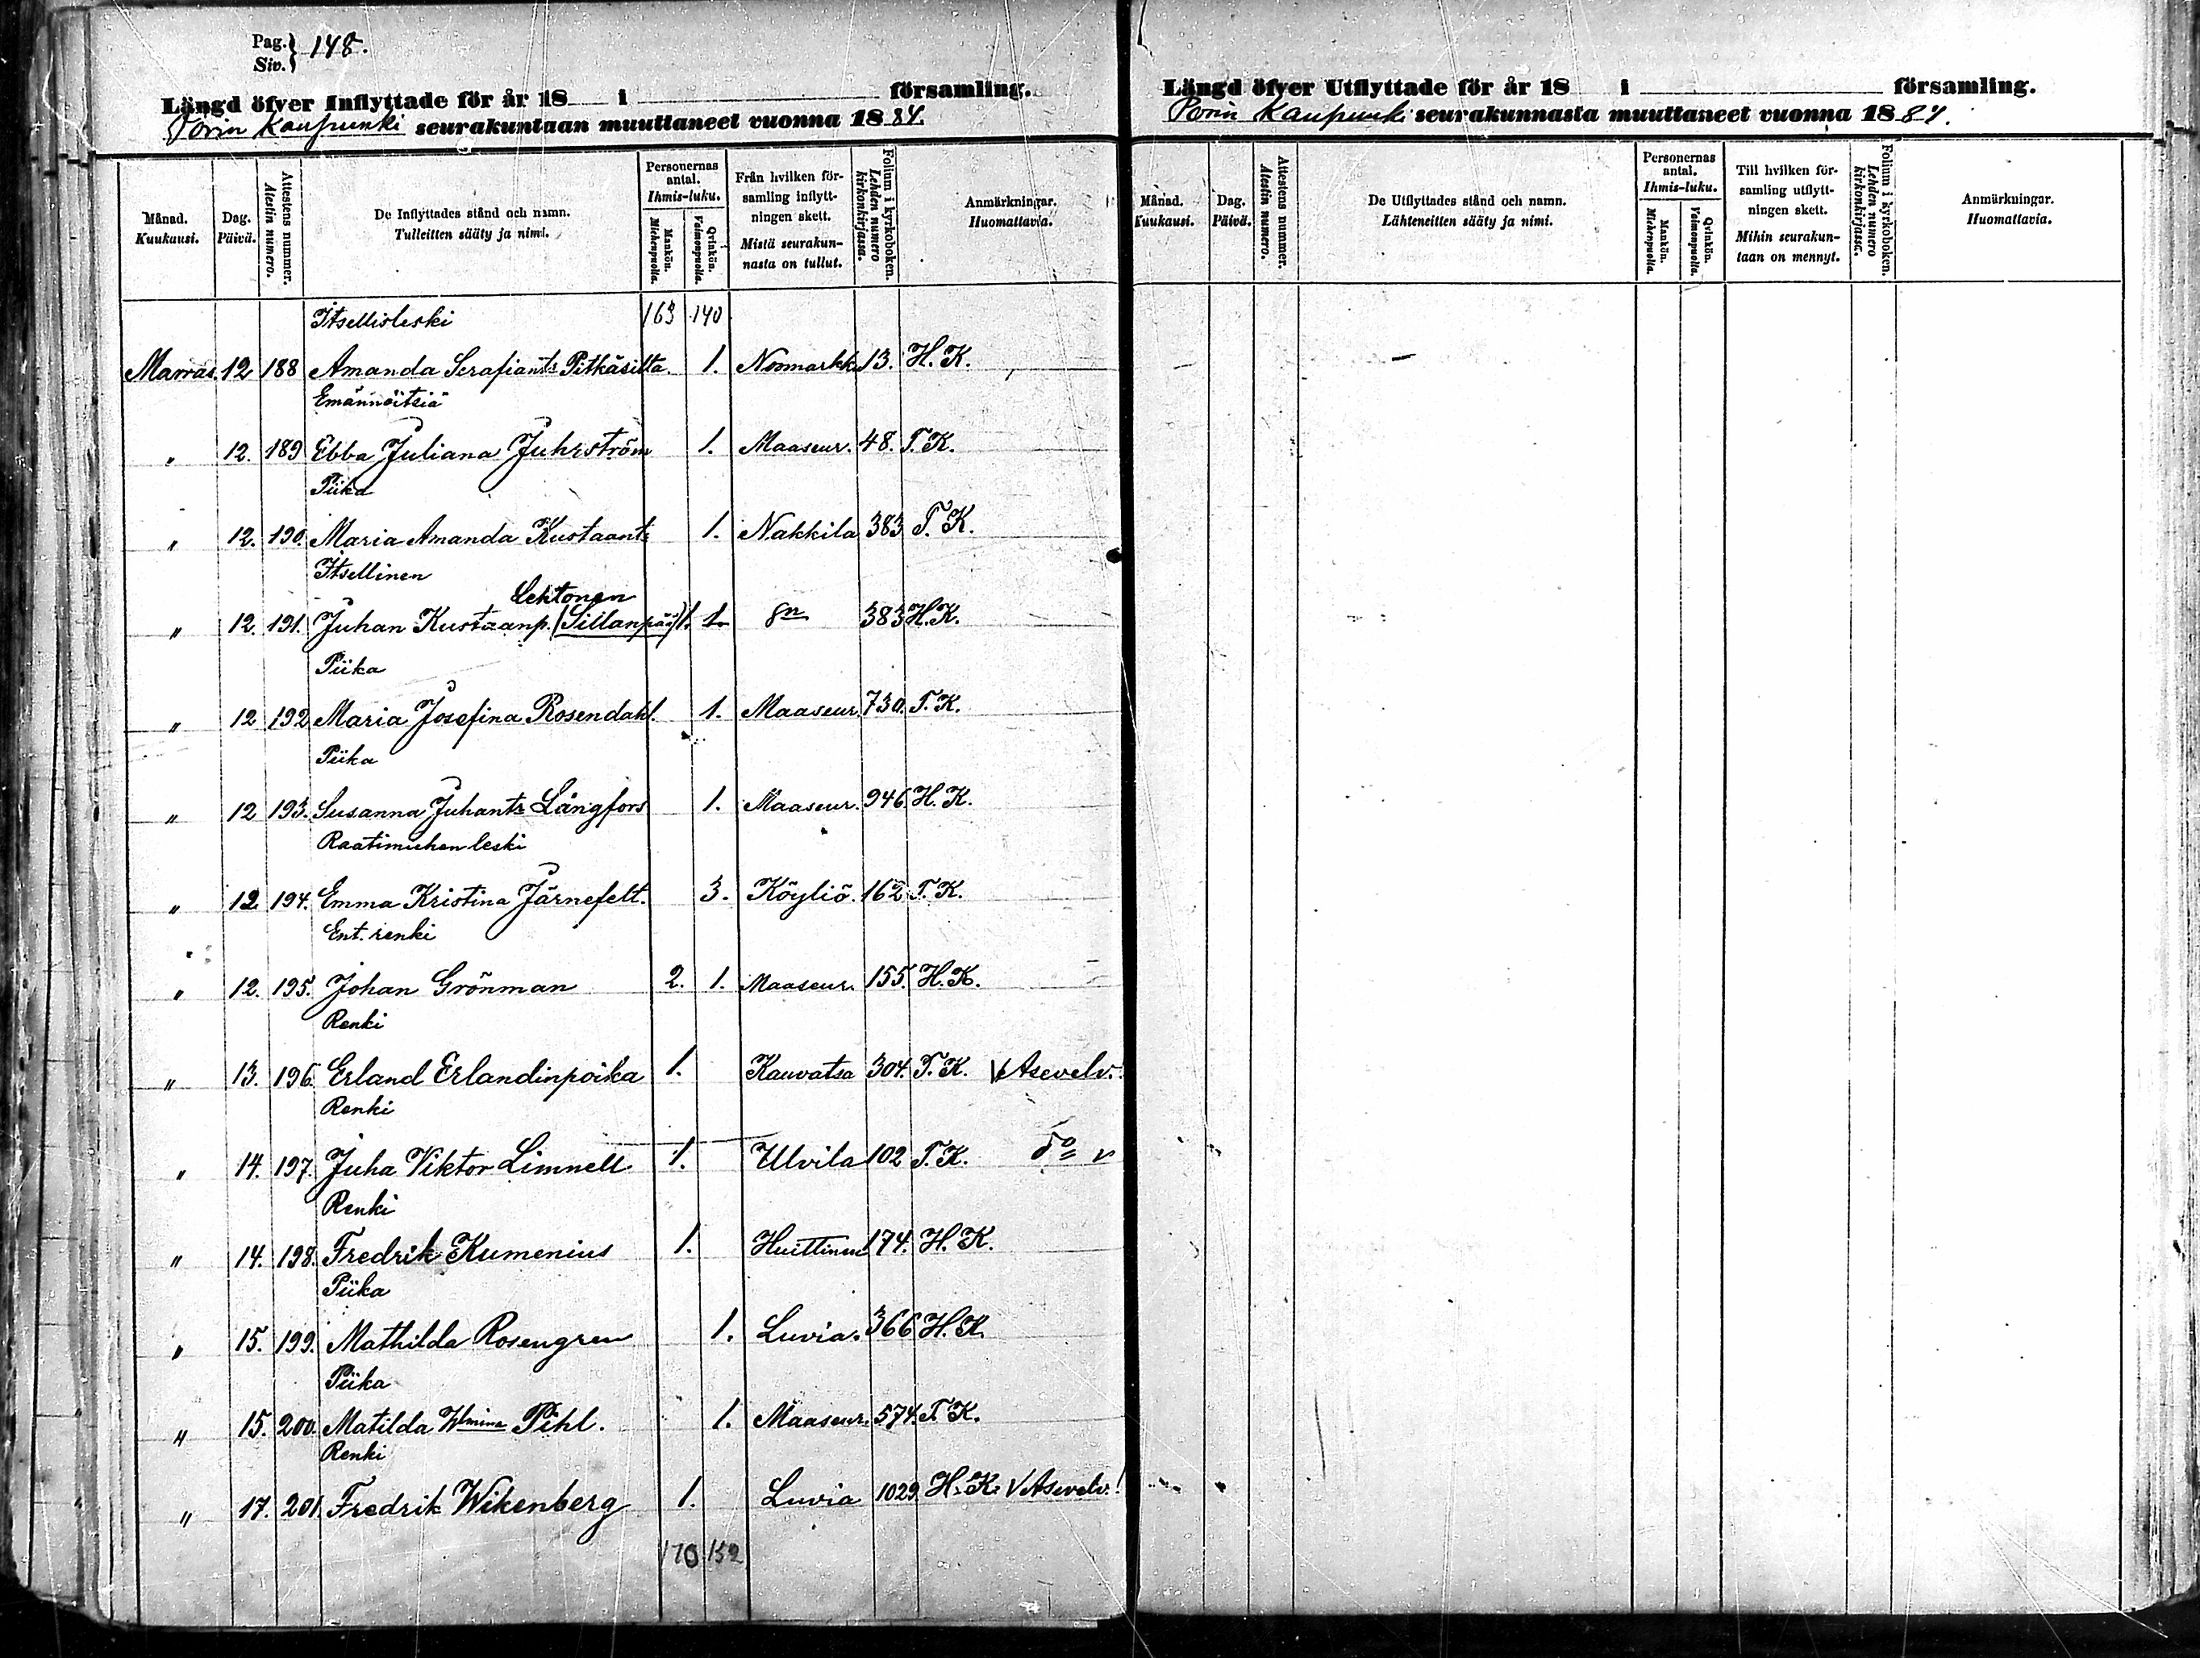 Pag. } 148.
Siv. }
Längd öfver Inflyttade för år 18 i församling.
Porin Kaupunki seurakuntaan muuttaneet vuonna 1884.
Månad. Kuukausi.
Dag. Päivä.
Attestens nummer. Atestin numero.
De Inflyttades stånd och namn.
Tulleitten sääty ja nimi.
Personernas antal.
Ihmis-luku.
Mankön. Miehenpuolia.
Qvinkön. Vaimonpuolia.
Från hvilken församling inflyttningen skett.
Mistä seurakunnasta on tullut.
Folium i kyrkoboken. Lehden numero kirkonkirjassa.
Anmärkningar. Huomattavia.
Itsellisleski 163 140
Marras. 12 188 Amanda Serafiant: Pitkäsilta. 1. Noomarkk. 13. H. K.
Emännöitsiä
" 12. 189 Ebba Juliana Juhrström 1. Maaseur. 48. T. K.
Piika
" 12. 190. Maria Amanda Kustaant: 1. Nakkila 383 T. K.
Itsellinen
Lehtonen
" 12. 191. Juhan Kustaanp. (Sillanpää) 1. 1. 383 H. K.
Piika
" 12 192 Maria Josefina Rosendahl. 1. Maaseur. 730. T. K.
Piika
" 12 193. Susanna Juhantr Långfors 1. Maaseur. 946. H. K.
Raatimiehen leski
" 12. 194. Emma Kristina Järnefelt. 3. Köyliö. 162 T. K.
Ent. renki
" 12. 195. Johan Grönman 2. 1. Maaseur. 155. H. K.
Renki
" 13. 196. Erland Erlandinpoika 1. Kauvatsa 304. T. K. V Asevelv.
Renki
" 14. 197. Juha Viktor Limnell 1. Ulvila 102 T. K. do v
Renki
" 14. 198. Fredrik Kumenius 1. Huittinen 174. H. K.
Piika
" 15. 199. Mathilda Rosengren 1. Luvia. 366 H. K.
Piika
" 15. 200. Matilda Wlmina Pihl. 1. Maaseur. 574. T. K.
Renki
" 17. 201. Fredrik Wikenberg 1. Luvia 1029. H. K. V Asevelv.!
170 152
Längd öfver Utflyttade för år 18 i församling.
Porin Kaupunki seurakunnasta muuttaneet vuonna 1884.
Månad. Kuukausi.
Dag. Päivä.
Attestens nummer. Atestin numero.
De Utflyttades stånd och namn.
Lähteneitten sääty ja nimi.
Personernas antal.
Ihmis-luku.
Mankön. Miehenpuolia.
Qvinkön. Vaimonpuolia.
Till hvilken församling utflyttningen skett.
Mihin seurakuntaan on mennyt.
Folium i kyrkoboken. Lehden numero kirkonkirjassa.
Anmärkningar. Huomattavia.